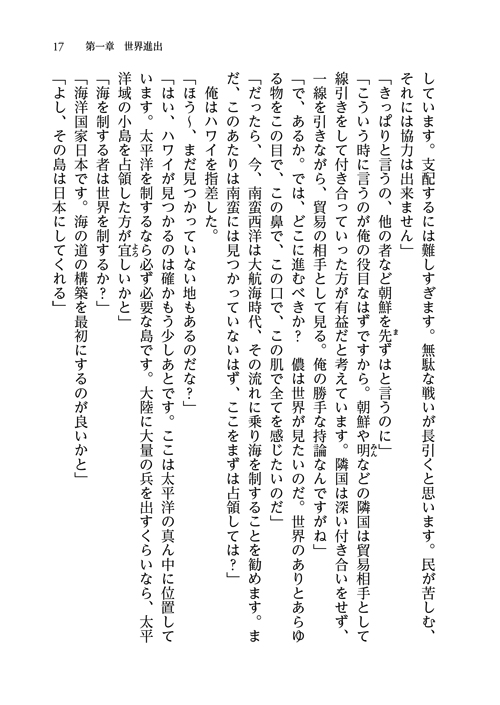 17　第一章　世界進出
しています。支配するには難しすぎます。無駄な戦いが長引くと思います。民が苦しむ、
それには協力は出来ません」
「きっぱりと言うの、他の者など朝鮮を先ずはと言うのに」
「こういう時に言うのが俺の役目なはずですから。朝鮮や明などの隣国は貿易相手として
線引きをして付き合っていった方が有益だと考えています。隣国は深い付き合いをせず、
一線を引きながら、貿易の相手として見る。俺の勝手な持論なんですがね」
「で、あるか。では、どこに進むべきか？　儂は世界が見たいのだ。世界のありとあらゆ
る物をこの目で、この鼻で、この口で、この肌で全てを感じたいのだ」
「だったら、今、南蛮西洋は大航海時代、その流れに乗り海を制することを勧めます。ま
だ、このあたりは南蛮には見つかっていないはず、ここをまずは占領しては？」
　俺はハワイを指差した。
「ほう～、まだ見つかっていない地もあるのだな？」
「はい、ハワイが見つかるのは確かもう少しあとです。ここは太平洋の真ん中に位置して
います。太平洋を制するなら必ず必要な島です。大陸に大量の兵を出すくらいなら、太平
洋域の小島を占領した方が宜しいかと」
「海を制する者は世界を制するか？」
「海洋国家日本です。海の道の構築を最初にするのが良いかと」
「よし、その島は日本にしてくれる」